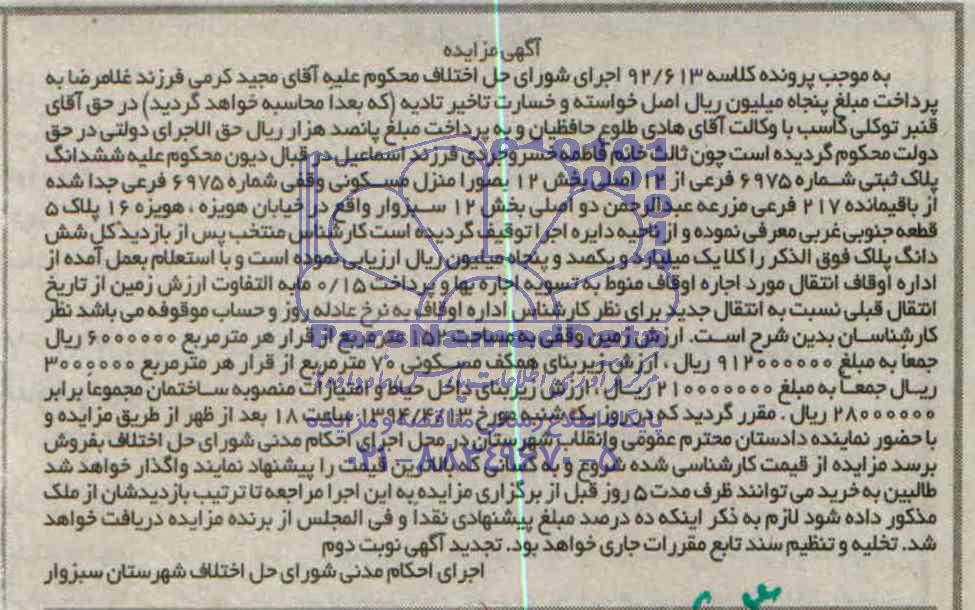 آگهی مزایده
به موجب پرونده کلاسه ۹۲/۶۱۳ اجرای شورای حل اختلاف محکوم علیه آقای مجید کرمی فرزند غلامرضا به
پرداخت مبلغ پنجاه میلیون ریال اصل خواسته و خسارت تاخیر تادیه (که بعدا محاسبه خواهد گردید) در حق آقای
قنبر توکلی کاسب با وکالت آقای هادی طلوع حافظیان و به پرداخت مبلغ پانصد هزار ریال حق الاجرای دولتی در حق
دولت محکوم گردیده است چون ثالث خانم فاطمه خسروجردی فرزند اسماعیل در قبال دیون محکوم علیه ششدانگ
پلاک ثبتی شماره ۶۹۷۵ فرعی از ۱۲ اصلی بخش ۱۲ بصورا منزل مسکونی وقفی شماره ۶۹۷۵ فرعی جدا شده
از باقیمانده ۲۱۷ فرعی مزرعه عبدالرحمن دو اصلی بخش ۱۲ سبزوار واقع در خیابان هویزه ، هویزه ۱۶ پلاک ۵
قطعه جنوبی غربی معرفی نموده و از ناحیه دایره اجرا توقیف گردیده است کارشناس منتخب پس از بازدید کل شش
دانگ پلاک فوق الذکر را کلا یک میلیارد و یکصد و پنجاه میلیون ریال ارزیابی نموده است و با استعلام بعمل آمده از
اداره اوقاف انتقال مورد اجاره اوقاف منوط به تسویه اجاره بها و پرداخت ۰/۱۵ مابه التفاوت ارزش زمین از تاریخ
انتقال قبلی نسبت به انتقال جدید برای نظر کارشناس اداره اوقاف به نرخ عادله روز و حساب موقوفه می باشد نظر
کارشناسان بدین شرح است. ارزش زمین وقفی به مساحت ۱۵۲ مترمربع از قرار هر مترمربع ۶۰۰۰۰۰۰ ریال
جمعا به مبلغ ۹۱۲۰۰۰۰۰۰ ریال ، ارزش زیربنای همکف مسکونی ۷۰ مترمربع از قرار هر مترمربع ۳۰۰۰۰۰۰
ریال جمعا به مبلغ ۲۱۰۰۰۰۰۰۰ ریال ، ارزش زیربنای داخل حیاط و امتیازات منصوبه ساختمان مجموعا برابر
۲۸۰۰۰۰۰۰ ریال . مقرر گردید که در روز یک شنبه مورخ ۱۳۹۴/۴/۱۳ ساعت ۱۸ بعد از ظهر از طریق مزایده و
با حضور نماینده دادستان محترم عمومی وانقلاب شهرستان در محل اجرای احکام مدنی شورای حل اختلاف بفروش
برسد مزایده از قیمت کارشناسی شده شروع و به کسانی که بالاترین قیمت را پیشنهاد نمایند واگذار خواهد شد
طالبین به خرید می توانند ظرف مدت ۵ روز قبل از برگزاری مزایده به این اجرا مراجعه تا ترتیب بازدیدشان از ملک
مذکور داده شود لازم به ذکر اینکه ده درصد مبلغ پیشنهادی نقدا و فی المجلس از برنده مزایده دریافت خواهد
شد. تخلیه و تنظیم سند تابع مقررات جاری خواهد بود. تجدید آگهی نوبت دوم
اجرای احکام مدنی شورای حل اختلاف شهرستان سبزوار
ParsNamadData
پایگاه اطلاع رسانی مناقصه و مزایده
۰۲۱-۸۸۳۴۹۶۷۰-۵